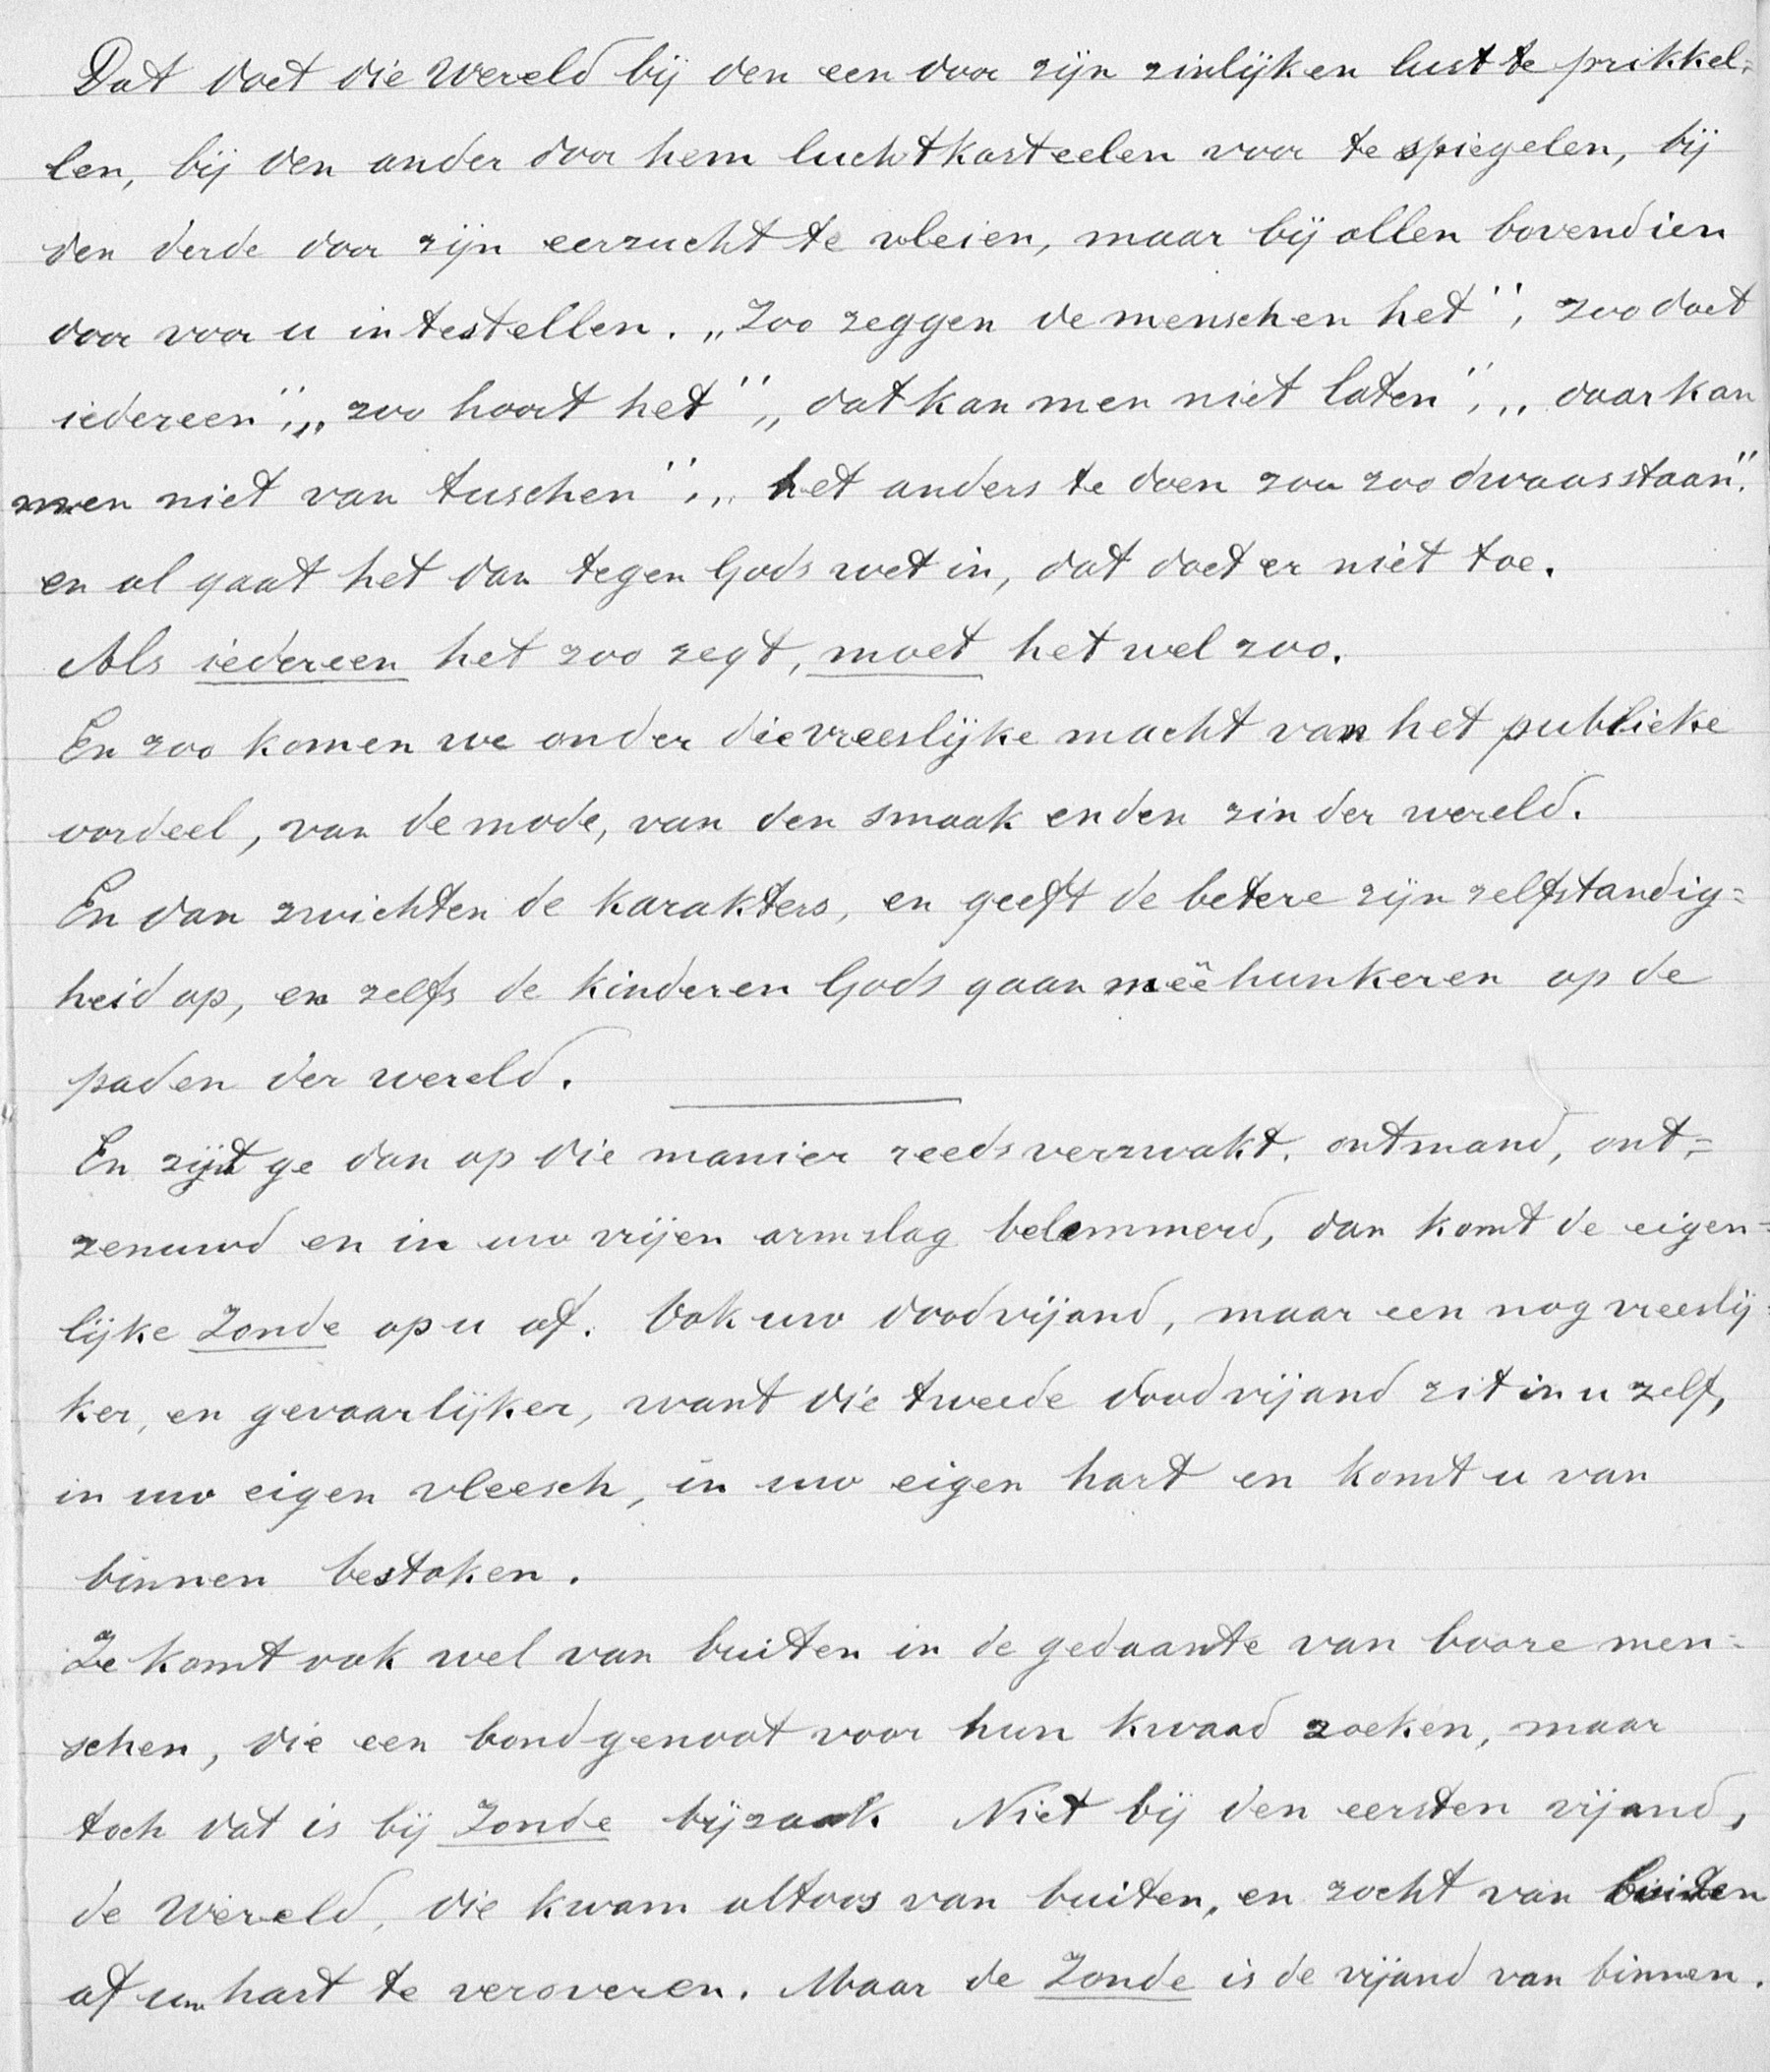 Dat doet die Wereld bij den een door zijn zinlijken lust te prikkel=
len, bij den ander door hem luchtkasteelen voor te spiegelen, bij
den derde door zijn eerzucht te vleien, maar bij allen bovendien
door voor u in te stellen. „Zoo zeggen de menschen het”, zoo doet
iedereen”, „zoo hoort het” „dat kan men niet laten”, „daar kan
men niet van tuschen”, „het anders te doen zou zoo dwaas staan”.
en al gaat het dan tegen Gods wet in, dat doet er niet toe.
Als iedereen het zoo zegt, moet het wel zoo.
En zoo komen we onder die vreeslijke macht van het publieke
oordeel, van de mode, van den smaak en den zin der wereld.
En dan zwichten de karakters, en geeft de betere zijn zelfstandig=
heid op, en zelfs de kinderen Gods gaan meê hunkeren op de
paden der wereld.
En zijt ge dan op die manier reeds verzwakt, ontmand, ont=
zenuwd en in uw vrijen armslag belemmerd, dan komt de eigen=
lijke Zonde op u af. Ook uw doodvijand, maar een nog vreeslij=
ker, en gevaarlijker, want die tweede doodvijand zit in u zelf,
in uw eigen vleesch, in uw eigen hart en komt u van
binnen bestoken.
Ze komt ook wel van buiten in de gedaante van booze men=
schen, die een bondgenoot voor hun kwaad zoeken, maar
toch dat is bij Zonde bijzaak Niet bij den eersten vijand,
de Wereld, die kwam altoos van buiten, en zocht van buiten
af uw hart te veroveren. Maar de Zonde is de vijand van binnen.